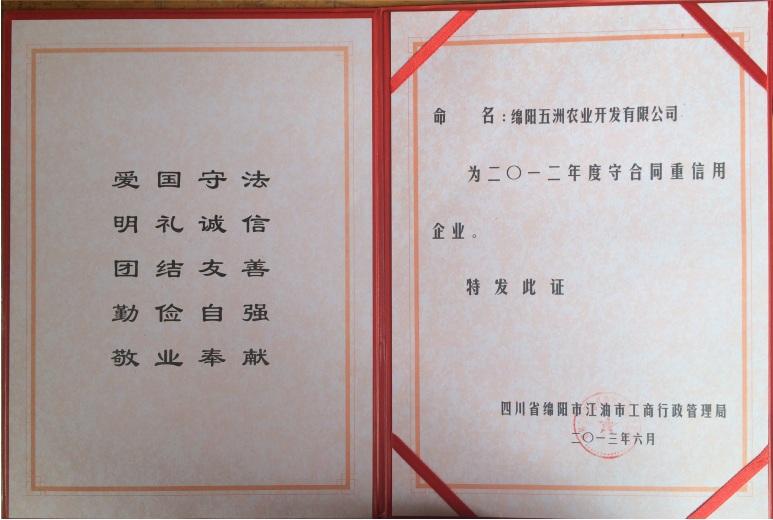 爱国守法
明礼诚信
团结友善
勤俭自强
敬业奉献
命 名：绵阳五洲农业开发有限公司
为二〇一二年度守合同重信用
企业。
特发此证
四川省绵阳市江油市工商行政管理局
二〇一三年六月